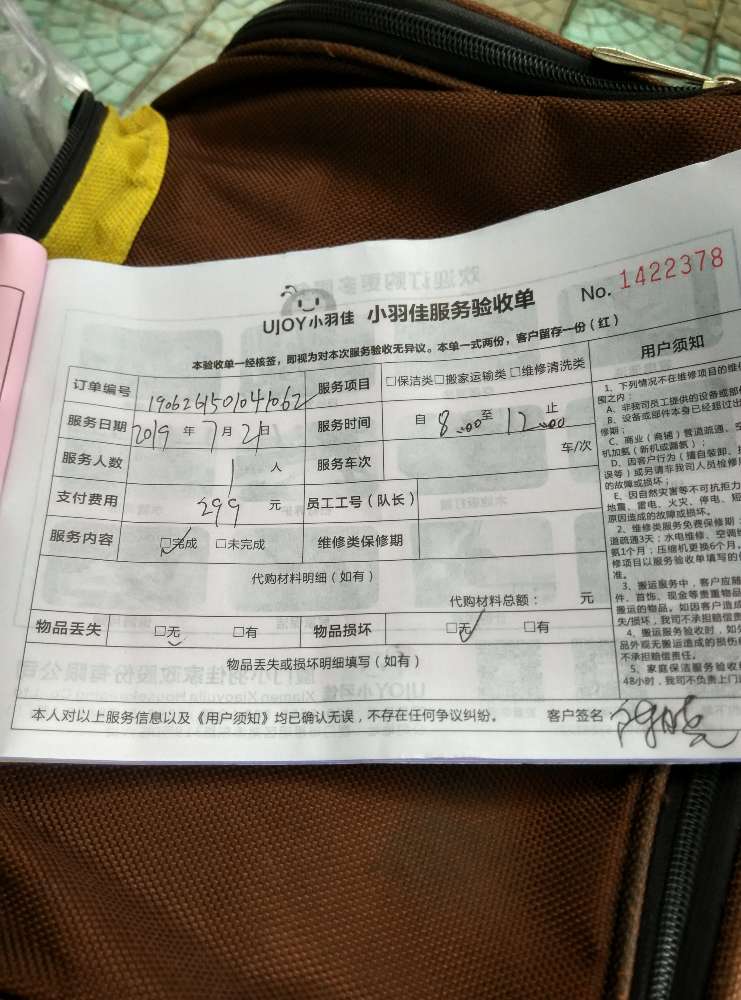 UJOY小羽佳 小羽佳服务验收单 No. 1422378
本验收单一经核签,即视为对本次服务验收无异议。本单一式两份,客户留存一份(红)
订单编号 190626150104062 服务项目 □保洁类□搬家运输类□维修清洗类
服务日期 2019 年 7 月 2 日 服务时间 自 8:00 至 12:00 止
服务人数 1 人 服务车次 车/次
支付费用 299 元 员工工号(队长)
服务内容 □完成 □未完成 维修类保修期
代购材料明细(如有)
代购材料总额: 元
物品丢失 □无 □有 物品损坏 □无 □有
物品丢失或损坏明细填写(如有)
本人对以上服务信息以及《用户须知》均已确认无误,不存在任何争议纠纷。 客户签名:
用户须知
1、下列情况不在维修项目的维
围之内:
A、非我司员工提供的设备或部
B、设备或部件本身已经超过出
修期;
C、商业(商铺)管道疏通、空
机加氨(新机或漏氨);
D、因客户行为(擅自装卸、
误等)或另请非我司人员检修
的故障或损坏;
E、因自然灾害等不可抗拒力
地震、雷电、火灾、停电、短
原因造成的故障或损坏。
2、维修类服务免费保修期:
道疏通3天;水电维修、空调
氨1个月;压缩机更换6个月。
修项目以服务验收单填写的
准。
3、搬运服务中,客户应随
件、首饰、现金等贵重物品
搬运的物品。如因客户造成
失/损坏,我司不承担赔偿责
4、搬运服务验收时,如
品外观无搬运造成的损伤
不承担赔偿责任。
5、家庭保洁服务验收
48小时,我司不负责上门